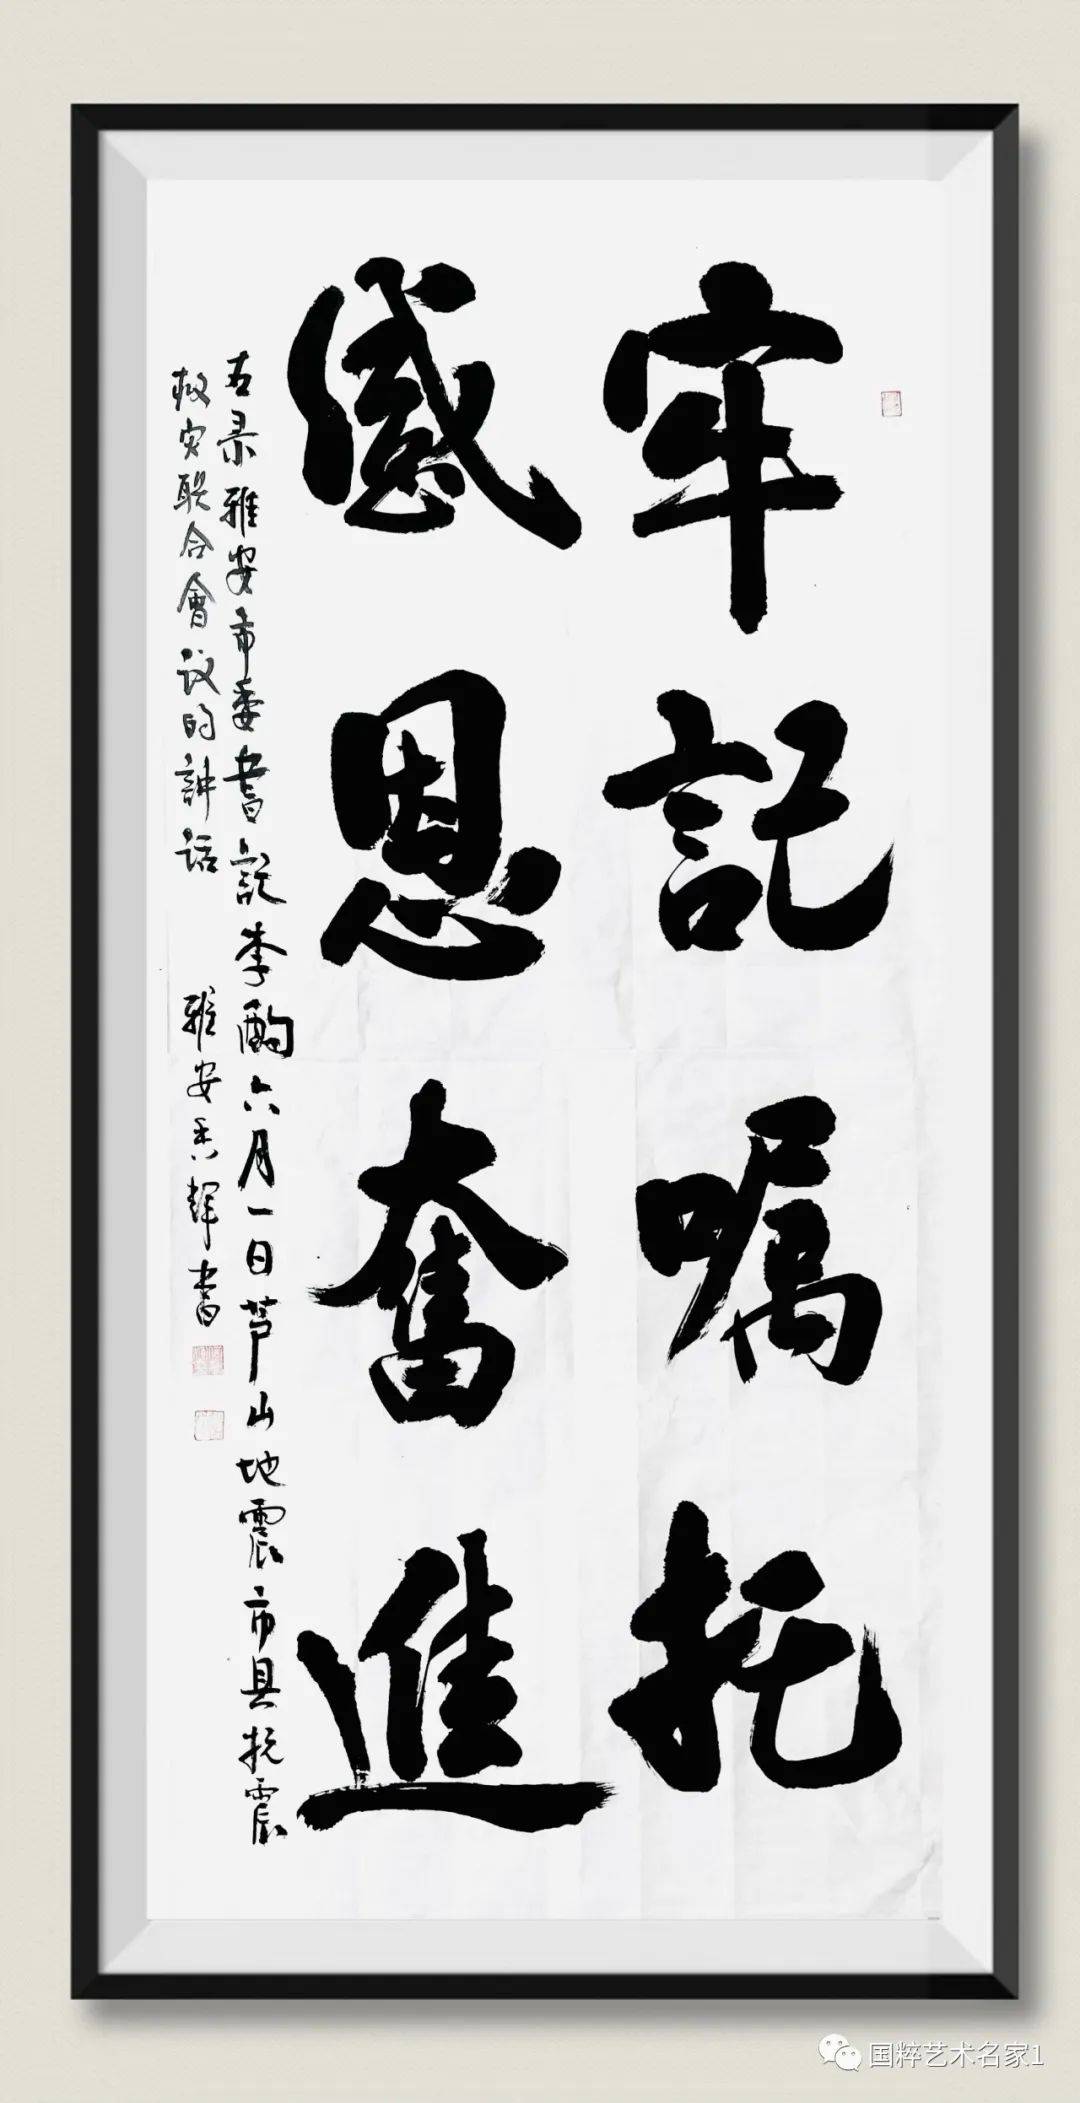 牢記嘱托
感恩奮進
右录雅安市委書記李酌六月一日芦山地震市县抗震
救灾联合會议的讲话
雅安秀輝書
国粹艺术名家1